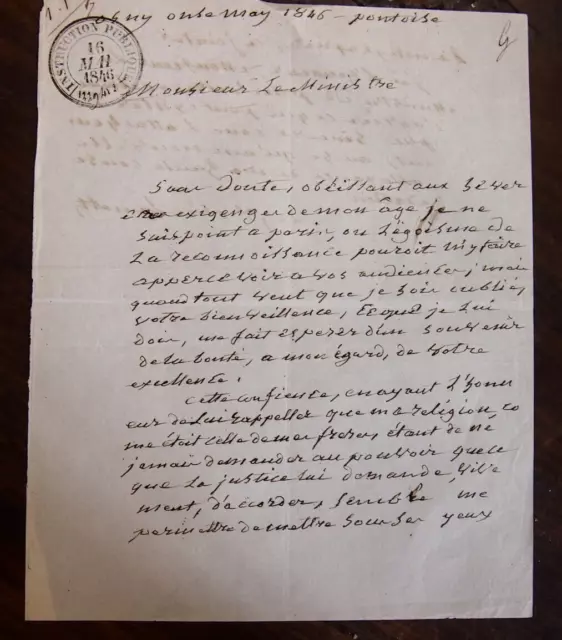 ny onse May 1846 - pontoise
INSTRUCTION PUBLIQUE
16
MAI
1846
Monsieur Le Ministre
Sans Doute, obéissant aux Séver
exigenger de mon âge je ne
suis point a paris, ou L'égoisme de
La reconnoissance pouroit m'y faire
appercevoir a vos audiences, mais
quand tout veut que je sois oublié,
votre bienveillence, Ce que je lui
dois, me fait esperer d'un souvenir
de la bonté, a mon égard, de votre
excellence.
Cette confience, en ayant L'honn
eur de Lui rappeller que ma religion, co
me était celle de mes freres, étant de ne
jamais demander au pouvoir que ce
que La justice lui demande, vive
ment, d'accorder, semble me
permettre de mettre sous ses yeux